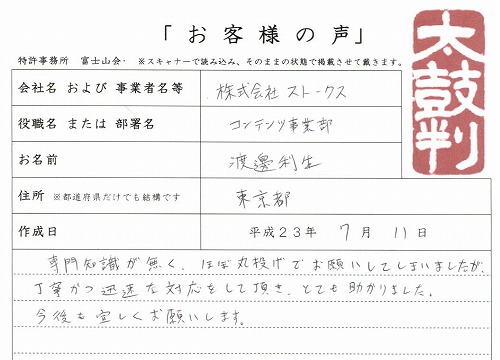 「お客様の声」
太鼓判
特許事務所 富士山会・ ※スキャナーで読み込み、そのままの状態で掲載させて戴きます。
会社名 および 事業者名等 株式会社 ストークス
役職名 または 部署名 コンテンツ事業部
お名前 渡邊利生
住所 ※都道府県だけでも結構です 東京都
作成日 平成23年 7月 11日
専門知識が無く、ほぼ丸投げでお願いしてしまいましたが、
丁寧かつ迅速な対応をして頂き、とても助かりました。
今後も宜しくお願いします。